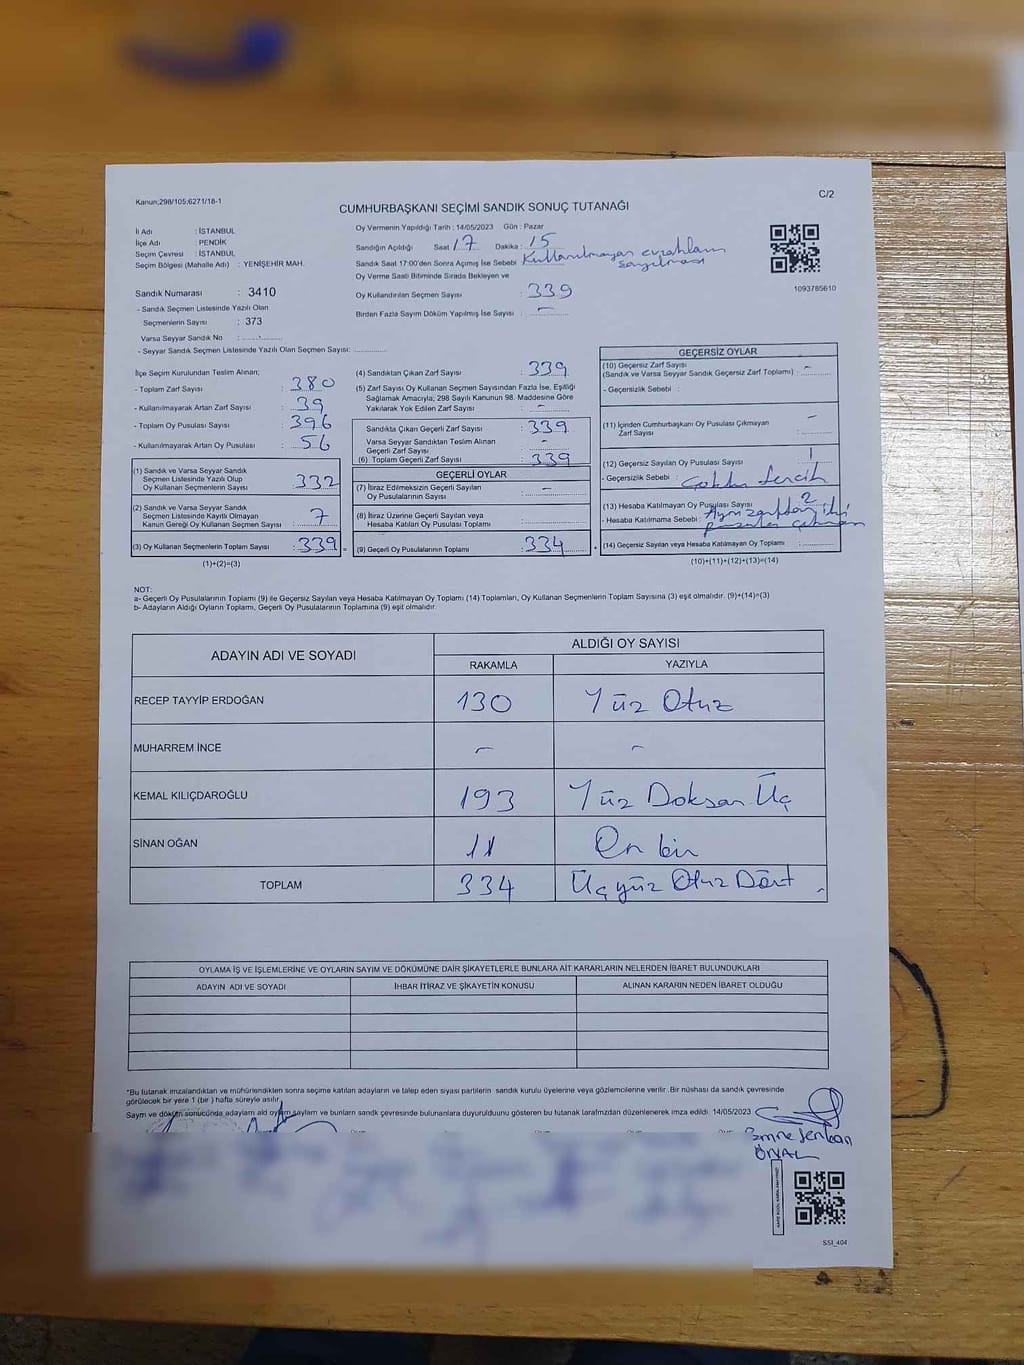 Kanun;298/105;6271/18-1
C/2
CUMHURBAŞKANI SEÇİMİ SANDIK SONUÇ TUTANAĞI
İl Adı : İSTANBUL
İlçe Adı : PENDİK
Seçim Çevresi : İSTANBUL
Seçim Bölgesi (Mahalle Adı) : YENİŞEHİR MAH.
Sandık Numarası : 3410
- Sandık Seçmen Listesinde Yazılı Olan
Seçmenlerin Sayısı : 373
Varsa Seyyar Sandık No :
- Seyyar Sandık Seçmen Listesinde Yazılı Olan Seçmen Sayısı:
Oy Vermenin Yapıldığı Tarih : 14/05/2023 Gün : Pazar
Sandığın Açıldığı Saat 17 Dakika : 15
Sandık Saat 17:00'den Sonra Açımış İse Sebebi : Kullanılmayan evrakların
sayılması
Oy Verme Saati Bitiminde Sırada Bekleyen ve
Oy Kullandırılan Seçmen Sayısı : 339
Birden Fazla Sayım Döküm Yapılmış İse Sayısı : -
1093785610
İlçe Seçim Kurulundan Teslim Alınan;
- Toplam Zarf Sayısı : 380
- Kullanılmayarak Artan Zarf Sayısı : 39
- Toplam Oy Pusulası Sayısı : 396
- Kullanılmayarak Artan Oy Pusulası : 56
(1) Sandık ve Varsa Seyyar Sandık
Seçmen Listesinde Yazılı Olup
Oy Kullanan Seçmenlerin Sayısı : 332
(2) Sandık ve Varsa Seyyar Sandık
Seçmen Listesinde Kayıtlı Olmayan
Kanun Gereği Oy Kullanan Seçmen Sayısı : 7
(3) Oy Kullanan Seçmenlerin Toplam Sayısı : 339 =
(1)+(2)=(3)
(4) Sandıktan Çıkan Zarf Sayısı : 339
(5) Zarf Sayısı Oy Kullanan Seçmen Sayısından Fazla İse, Eşitliği
Sağlamak Amacıyla; 298 Sayılı Kanunun 98. Maddesine Göre
Yakılarak Yok Edilen Zarf Sayısı : -
Sandıkta Çıkan Geçerli Zarf Sayısı : 339
Varsa Seyyar Sandıktan Teslim Alınan
Geçerli Zarf Sayısı : -
(6) Toplam Geçerli Zarf Sayısı : 339
GEÇERLİ OYLAR
(7) İtiraz Edilmeksizin Geçerli Sayılan
Oy Pusulalarının Sayısı : -
(8) İtiraz Üzerine Geçerli Sayılan veya
Hesaba Katılan Oy Pusulası Toplamı :
(9) Geçerli Oy Pusulalarının Toplamı : 334 +
GEÇERSİZ OYLAR
(10) Geçersiz Zarf Sayısı
(Sandık ve Varsa Seyyar Sandık Geçersiz Zarf Toplamı) : -
- Geçersizlik Sebebi :
(11) İçinden Cumhurbaşkanı Oy Pusulası Çıkmayan
Zarf Sayısı : -
(12) Geçersiz Sayılan Oy Pusulası Sayısı : 1
- Geçersizlik Sebebi : Çoklu tercih
(13) Hesaba Katılmayan Oy Pusulası Sayısı : 2
- Hesaba Katılmama Sebebi : Aynı zarftan iki
pusula çıkması
(14) Geçersiz Sayılan veya Hesaba Katılmayan Oy Toplamı :
(10)+(11)+(12)+(13)=(14)
NOT:
a- Geçerli Oy Pusulalarının Toplamı (9) ile Geçersiz Sayılan veya Hesaba Katılmayan Oy Toplamı (14) Toplamları, Oy Kullanan Seçmenlerin Toplam Sayısına (3) eşit olmalıdır. (9)+(14)=(3)
b- Adayların Aldığı Oyların Toplamı, Geçerli Oy Pusulalarının Toplamına (9) eşit olmalıdır.
ADAYIN ADI VE SOYADI ALDIĞI OY SAYISI
RAKAMLA YAZIYLA
RECEP TAYYİP ERDOĞAN 130 Yüz Otuz
MUHARREM İNCE - -
KEMAL KILIÇDAROĞLU 193 Yüz Doksan Üç
SİNAN OĞAN 11 On bir
TOPLAM 334 Üçyüz Otuz Dört
OYLAMA İŞ VE İŞLEMLERİNE VE OYLARIN SAYIM VE DÖKÜMÜNE DAİR ŞİKAYETLERLE BUNLARA AİT KARARLARIN NELERDEN İBARET BULUNDUKLARI
ADAYIN ADI VE SOYADI İHBAR İTİRAZ VE ŞİKAYETİN KONUSU ALINAN KARARIN NEDEN İBARET OLDUĞU
*Bu tutanak imzalandıktan ve mühürlendikten sonra seçime katılan adayların ve talep eden siyasi partilerin sandık kurulu üyelerine veya gözlemcilerine verilir. Bir nüshası da sandık çevresinde
görülecek bir yere 1 (bir) hafta süreyle asılır.
Sayım ve döküm sonucunda adayların aldığı oyların sayıları ve bunların sandık çevresinde bulunanlara duyurulduğunu gösteren bu tutanak tarafımızdan düzenlenerek imza edildi. 14/05/2023
ÖNAL
SSI_404